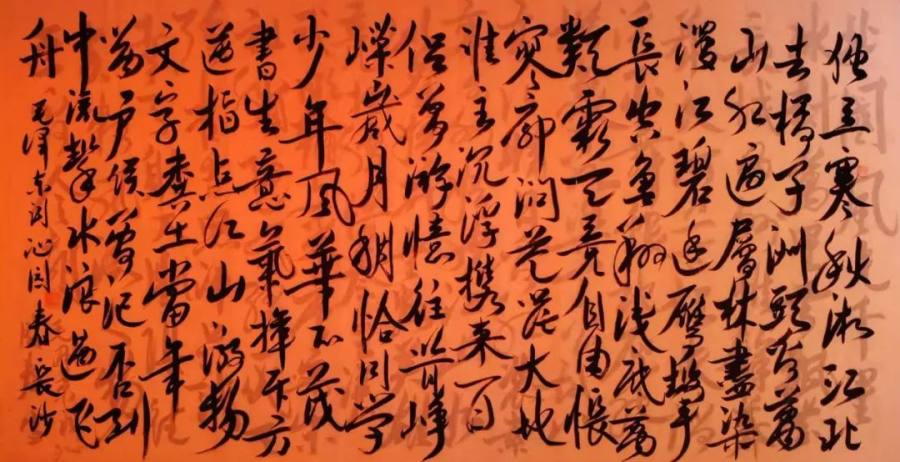 独立寒秋湘江北
去橘子洲頭看萬
山红遍層林盡染
漫江碧透鹰擊
長空魚翔浅底萬
類霜天竞自由悵
寥廓问苍茫大地
谁主沉浮携来百
侣曾游憶往昔峥
嵘歲月稠恰同学
少年风華正茂
書生意氣挥斥方
遒指点江山激扬
文字粪土當年
萬户侯曾记否到
中流擊水浪遏飞
舟 毛泽东词沁园春長沙